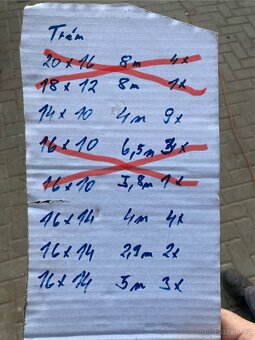 Trám
20 x 16 8m 4x
18 x 12 8m 1x
14 x 10 4m 9x
16 x 10 6,5m 3x
16 x 10 3,8m 1x
16 x 14 4m 4x
16 x 14 2,9m 2x
16 x 14 5m 3x